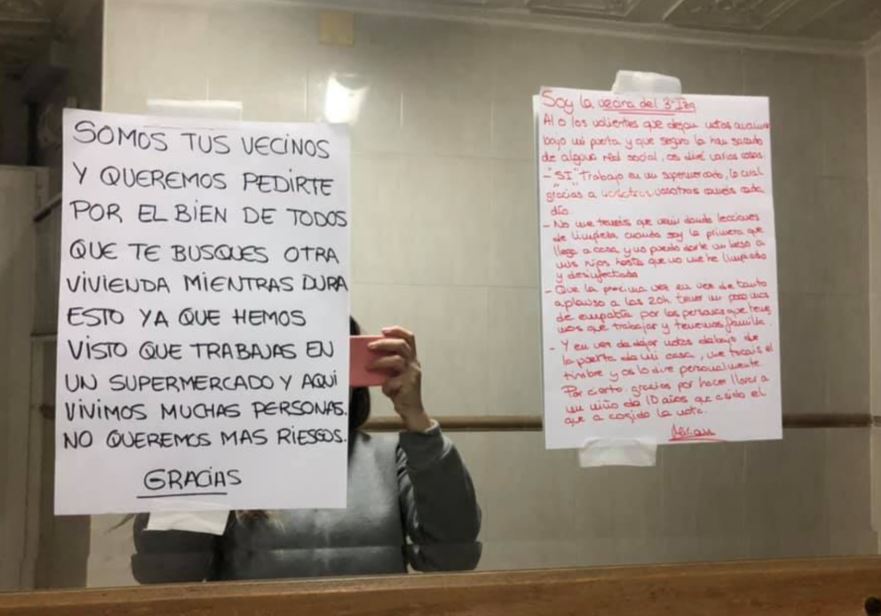 SOMOS TUS VECINOS
Y QUEREMOS PEDIRTE
POR EL BIEN DE TODOS
QUE TE BUSQUES OTRA
VIVIENDA MIENTRAS DURA
ESTO YA QUE HEMOS
VISTO QUE TRABAJAS EN
UN SUPERMERCADO Y AQUI
VIVIMOS MUCHAS PERSONAS.
NO QUEREMOS MAS RIESGOS.
GRACIAS
Soy la vecina del 3º Izq
Al o los valientes que dejan notas
bajo mi puerta y que seguro la han sacado
de alguna red social, os diré varias cosas.
- "SI" Trabajo en un supermercado, lo cual
gracias a vosotros coméis cada
día.
- No me tenéis que venir dando lecciones
de limpieza cuando soy la primera que
llega a casa y no puedo darle un beso a
mis hijos hasta que no me he limpiado
y desinfectado
- Que la próxima vez en vez de tanto
aplauso a las 20h tener un poco mas
de empatía por las personas que tene
mos que trabajar y tenemos familia.
- Y en vez de dejar notas debajo de
la puerta de mi casa, me tocais el
timbre y os lo dire personalmente.
Por cierto gracias por hacer llorar a
un niño de 10 años que a sido el
que a cogido la nota.